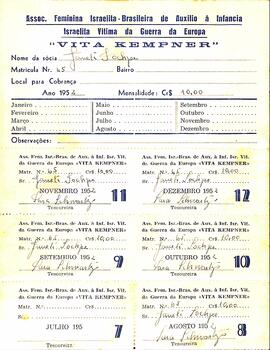 Assoc. Feminina Israelita-Brasileira de Auxilio á Infancia
Israelita Vitima da Guerra da Europa
"VITA KEMPNER"
Nome da sócia
Matricula Nr. 45 Bairro
Local para Cobrança
Ano 1952 Mensalidade: Cr$ 10,00
Janeiro Maio Setembro
Fevereiro Junho Outubro
Março Julho Novembro
Abril Agosto Dezembro
Observações:
Ass. Fem. Isr.-Bras. de Aux. á Inf. Isr. Vit.
da Guerra da Europa «VITA KEMPNER»
Matr. N.º Cr$ 10,00
Sr.
NOVEMBRO 195
11
Tesoureira
Ass. Fem. Isr.-Bras. de Aux. á Inf. Isr. Vit.
da Guerra da Europa «VITA KEMPNER»
Matr. N.º Cr$ 10,00
Sr.
DEZEMBRO 195
12
Tesoureira
Ass. Fem. Isr.-Bras. de Aux. á Inf. Isr. Vit.
da Guerra da Europa «VITA KEMPNER»
Matr. N.º Cr$ 10,00
Sr.
SETEMBRO 195
9
Tesoureira
Ass. Fem. Isr.-Bras. de Aux. á Inf. Isr. Vit.
da Guerra da Europa «VITA KEMPNER»
Matr. N.º Cr$ 10,00
Sr.
OUTUBRO 195
10
Tesoureira
Ass. Fem. Isr.-Bras. de Aux. á Inf. Isr. Vit.
da Guerra da Europa «VITA KEMPNER»
Matr. N.º Cr$
Sr.
JULHO 195
7
Tesoureira
Ass. Fem. Isr.-Bras. de Aux. á Inf. Isr. Vit.
da Guerra da Europa «VITA KEMPNER»
Matr. N.º Cr$ 10,00
Sr.
AGOSTO 195
8
Tesoureira